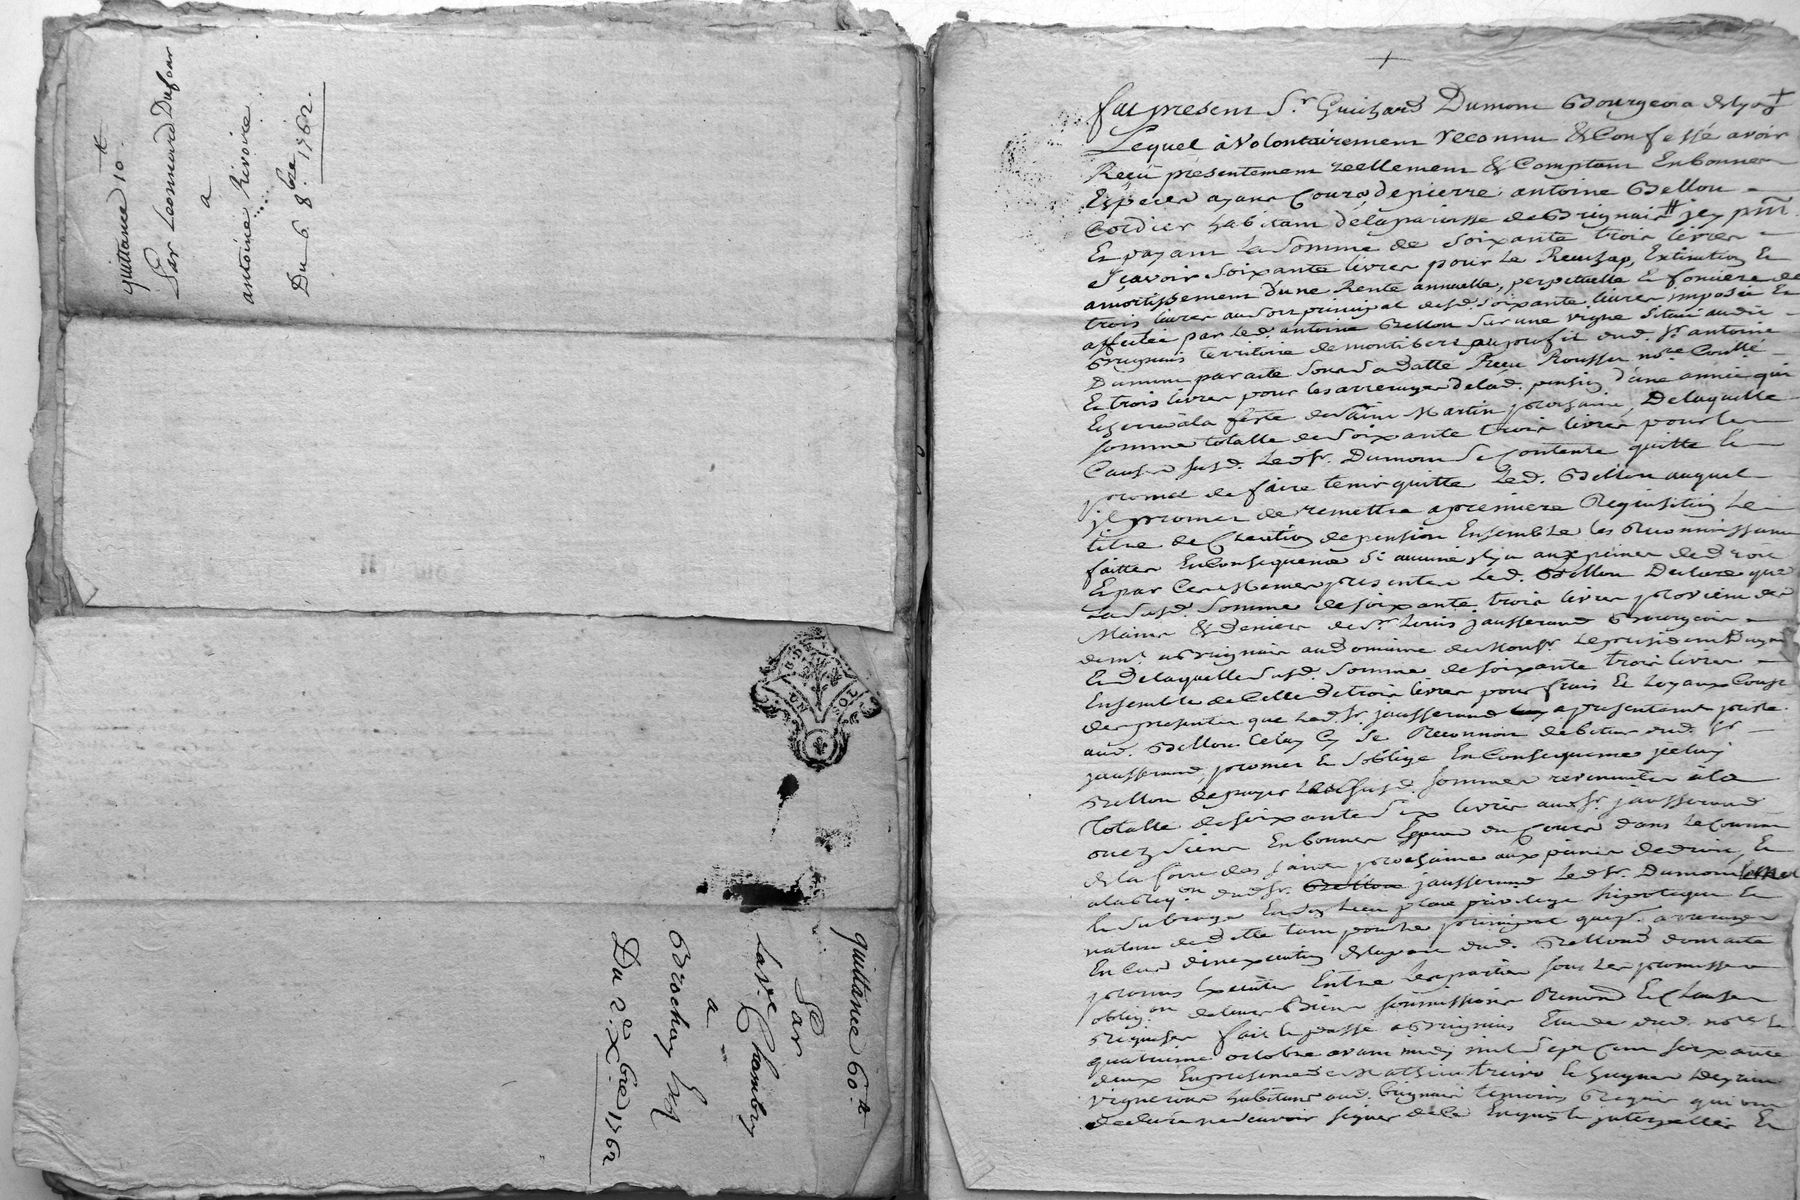 quittance 10ᵗᵗ
Par Leonnard Dufour
a
antoine Rivoire
Du 6 8bre 1762.
quittance 60ᵗᵗ
Par
La ve. Chambry
a
Brochay
Du 2e Xbre 1762
fut present Sr. Guichard Dumont Bourgeois
Lequel a volontairement reconnu & Confessé avoir
Reçu presentement reellement & Comptant En bonnes
Especes ayant Cours de pierre antoine Bellou
Cordier habitant de la paroisse de Brignais jcy pnt.
Et payant La Somme de Soixante trois livres
Sçavoir Soixante livres pour Le Rachap, Extinction Et
amortissement d'une Rente annuelle, perpetuelle & fonciere de
trois livres au Sort principal desd. Soixante livres imposée Et
affectée par Led. antoine Bellou Sur une vigne Située audit
Brignais territoire de montibert au profit dud. Sr. antoine
Dumont par acte Sous Sa datte Reçu Rousset nore.
Et trois livres pour les arrerages de lad. pension d'une année qui
Echerra à la feste de Saint Martin prochaine, De laquelle
Somme totalle de Soixante trois livres pour les
Causes susd. Led. Sr. Dumont Se Contente quitte &
promet de faire tenir quitte Led. Bellou auquel
jl promet de remettre a premiere Requisition Le
titre de Creation de pension Ensemble les Reconnoissances
faittes En Consequence Si aucune jl y a aux peines de droit
Et par Ces Memes presentes Led. Bellou Declare que
La Susd. Somme de Soixante trois livres provient des
Mains & Deniers de Sr. Louis jausserand Bourgeois
demt. a Brignais au Domaine de Monsr. Le president
Et De laquelle Susd. Somme de Soixante trois livres
Ensemble de Celle de trois livres pour frais Et Loyaux Couts
des presentes que Led. Sr. jausserand a presentement
aud. Bellou Celuy Cy Se Reconnoit debiteur dud. Sr.
jausserand, promet Et S'oblige En Consequence
Bellou de payer Les Susd. Sommes revenantes à la
Totalle de Soixante Six livres aud. Sr. jausserand
En bonnes Especes du Cours dans Le Courant
de la foire des Saints prochaine aux peines de droit, Et
dud. Sr. jausserand Led. Sr. Dumont
Le Subroge En Son Lieu place privilege hipoteque Et
nature de dette tant pour Le principal que pr. arrerages
En Cas d'inexecution de la part dud. Bellou
promis Executer Entre Les parties Sous Les promesses
oblig.on de leurs Biens Soumissions Renond. Et Clauses
Requises fait & passé a Brignais Etude dud. nore. Le
quatrieme octobre avant midy mil Sept Cent Soixante
deux En presence de
vignerons habitans aud. Brignais temoins Requis qui ont
declaré ne Sçavoir Signer de Ce Enquis & jnterpellés Et